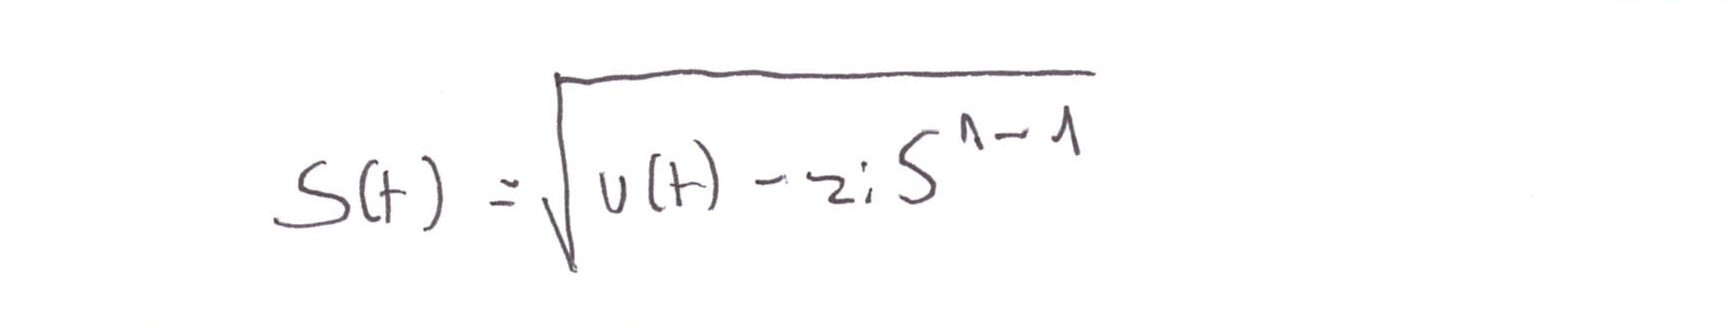 S(t) = √(u(t) - 2i S^(1-1))